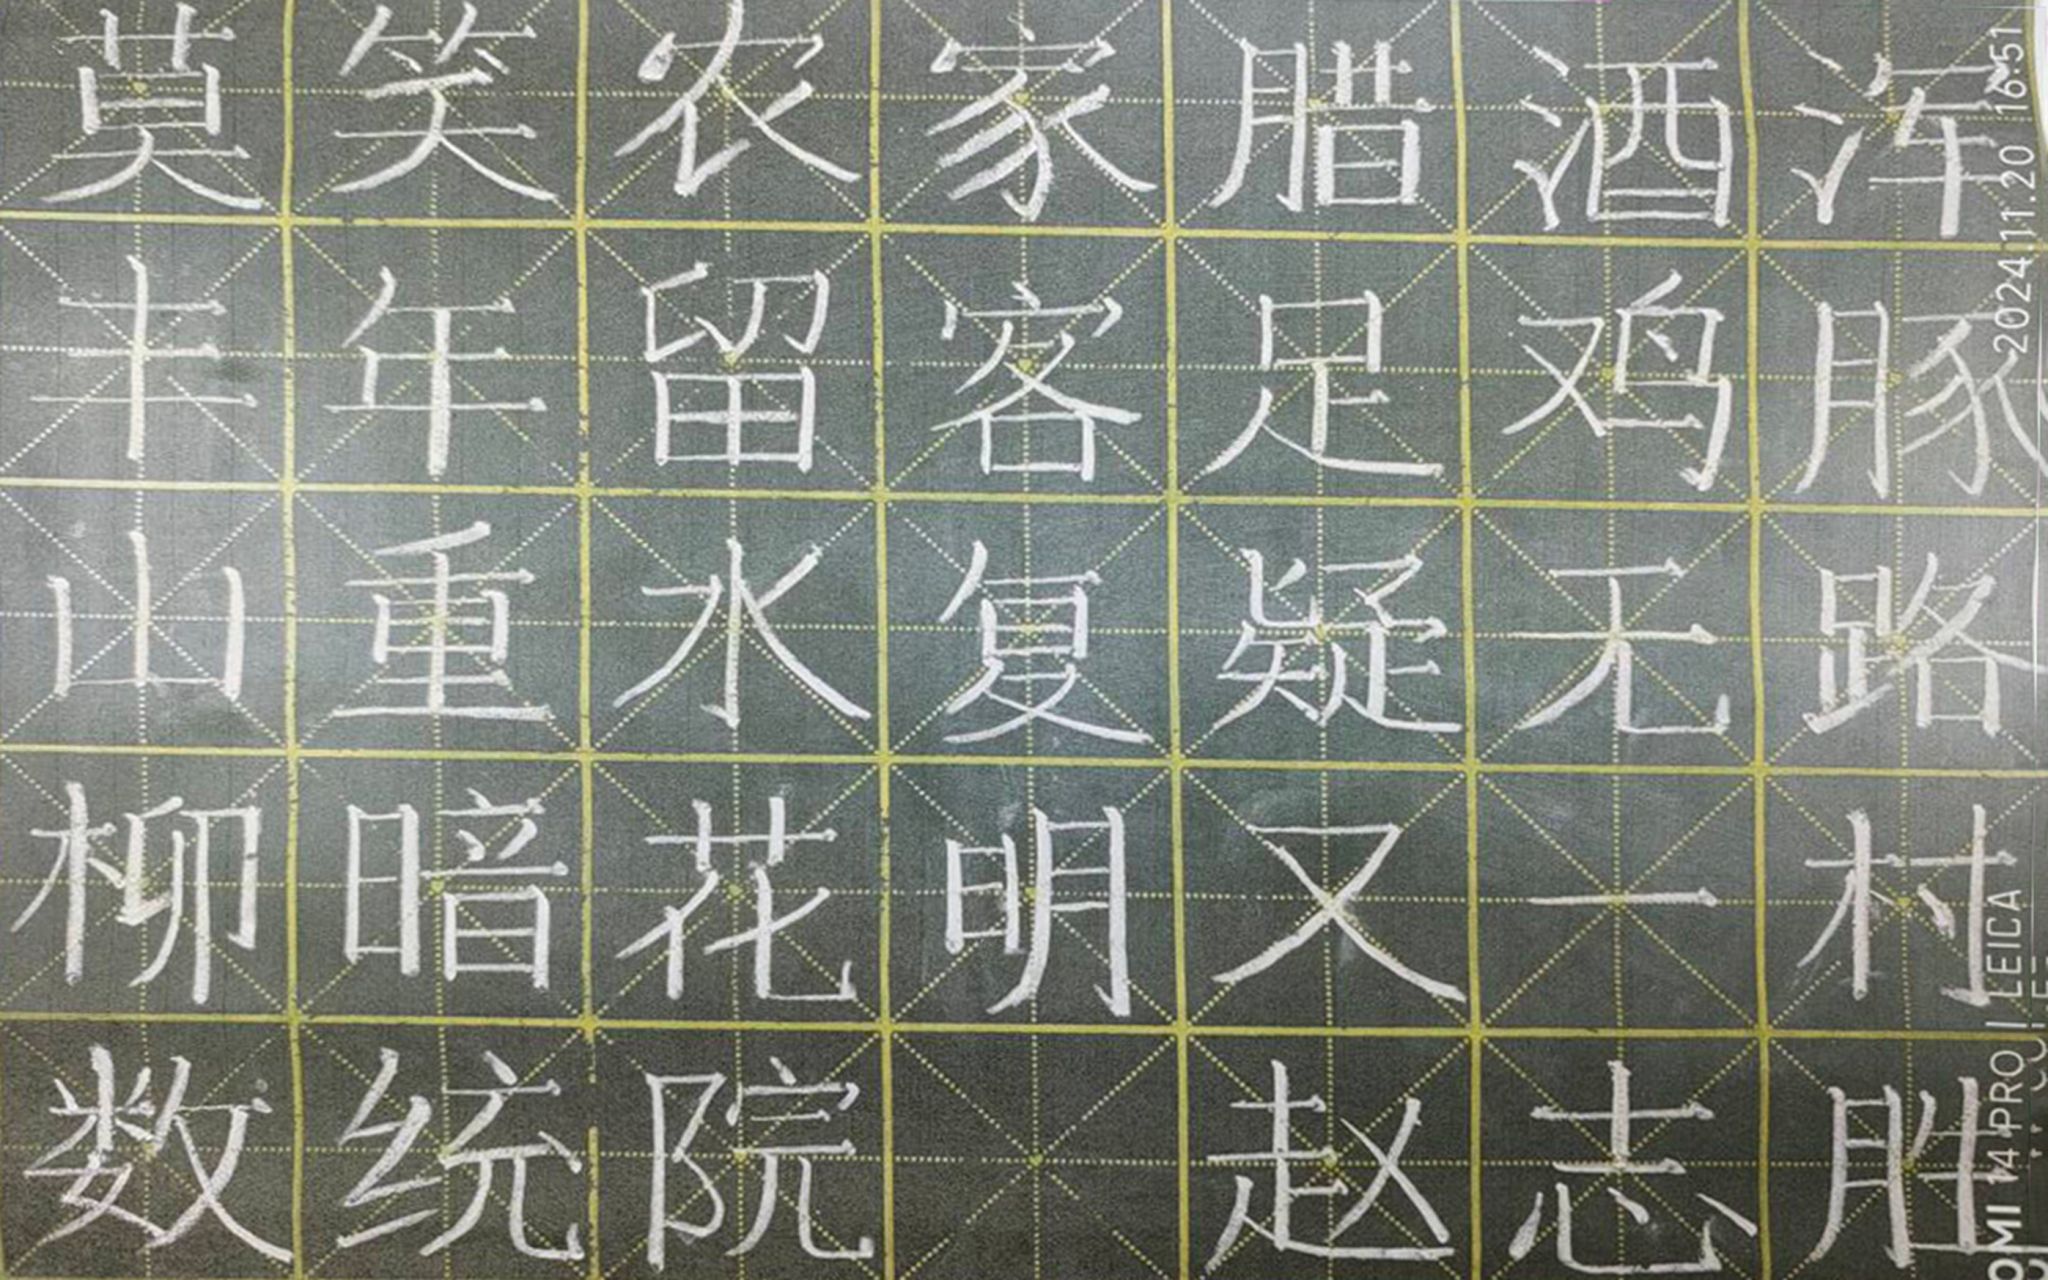 莫笑农家腊酒浑
丰年留客足鸡豚
山重水复疑无路
柳暗花明又一村
数统院 赵志胜
2024.11.20 16:51
14 PRO | LEICA